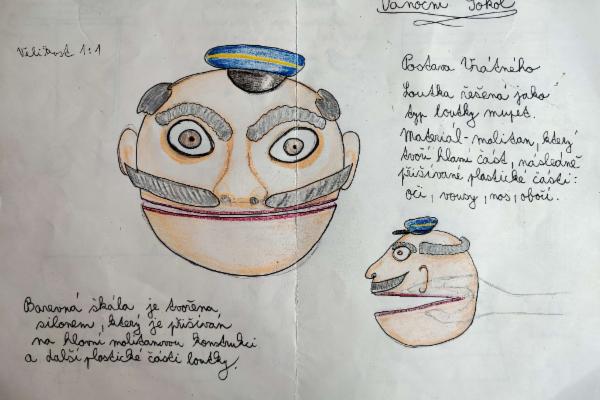 Vánoční Sokol
Velikost 1:1
Postava Vrátného
Loutka řešená jako
typ loutky mupet.
Materiál - molitan, který
tvoří hlavní část, následně
přišívané plastické části:
oči, vousy, nos, obočí.
Barevná škála je tvořena
silonem, který je přišíván
na hlavní molitanovou konstrukci
a další plastické části loutky.